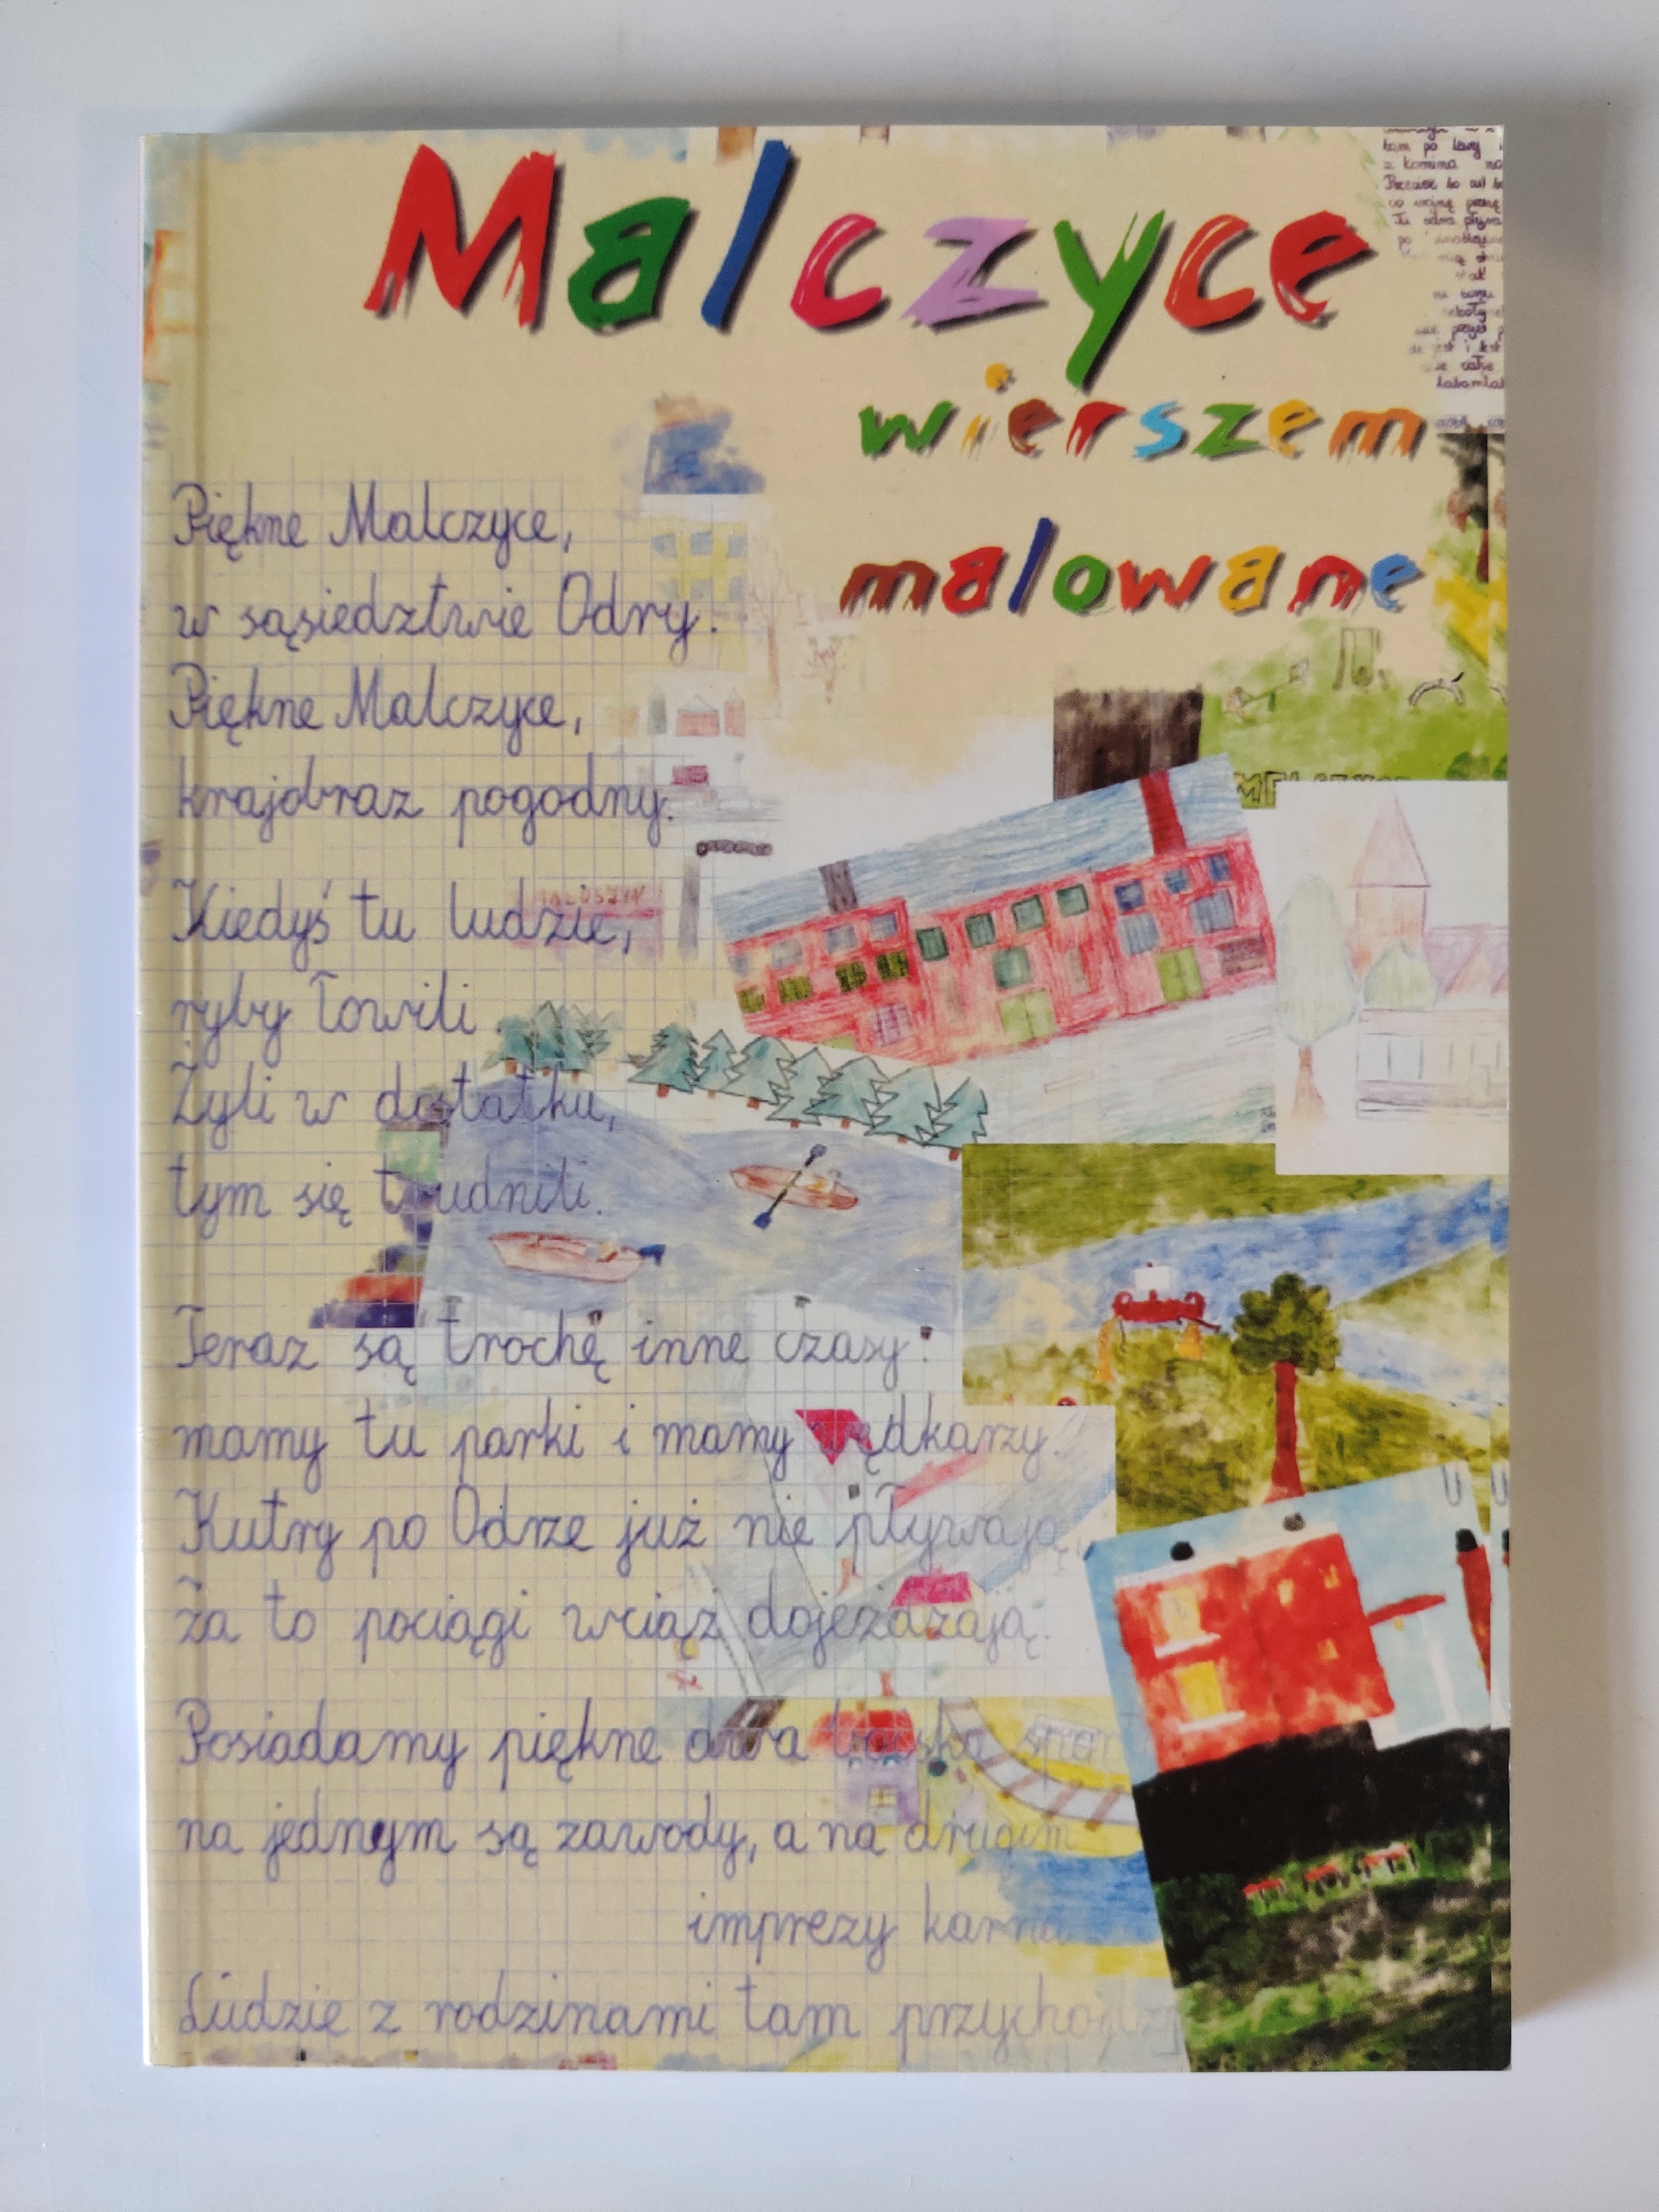 Malczyce
wierszem
malowane
Piękne Malczyce,
w sąsiedztwie Odry.
Piękne Malczyce,
krajobraz pogodny.
Kiedyś tu ludzie,
ryby łowili
Żyli w dostatku,
tym się trudnili.
Teraz są trochę inne czasy:
mamy tu parki i mamy wędkarzy.
Kutry po Odrze już nie pływają,
za to pociągi wciąż dojeżdżają.
Posiadamy piękne dwa boiska
na jednym są zawody, a na drugim
imprezy
Ludzie z rodzinami tam przychodzą
tam po lewej
z komina